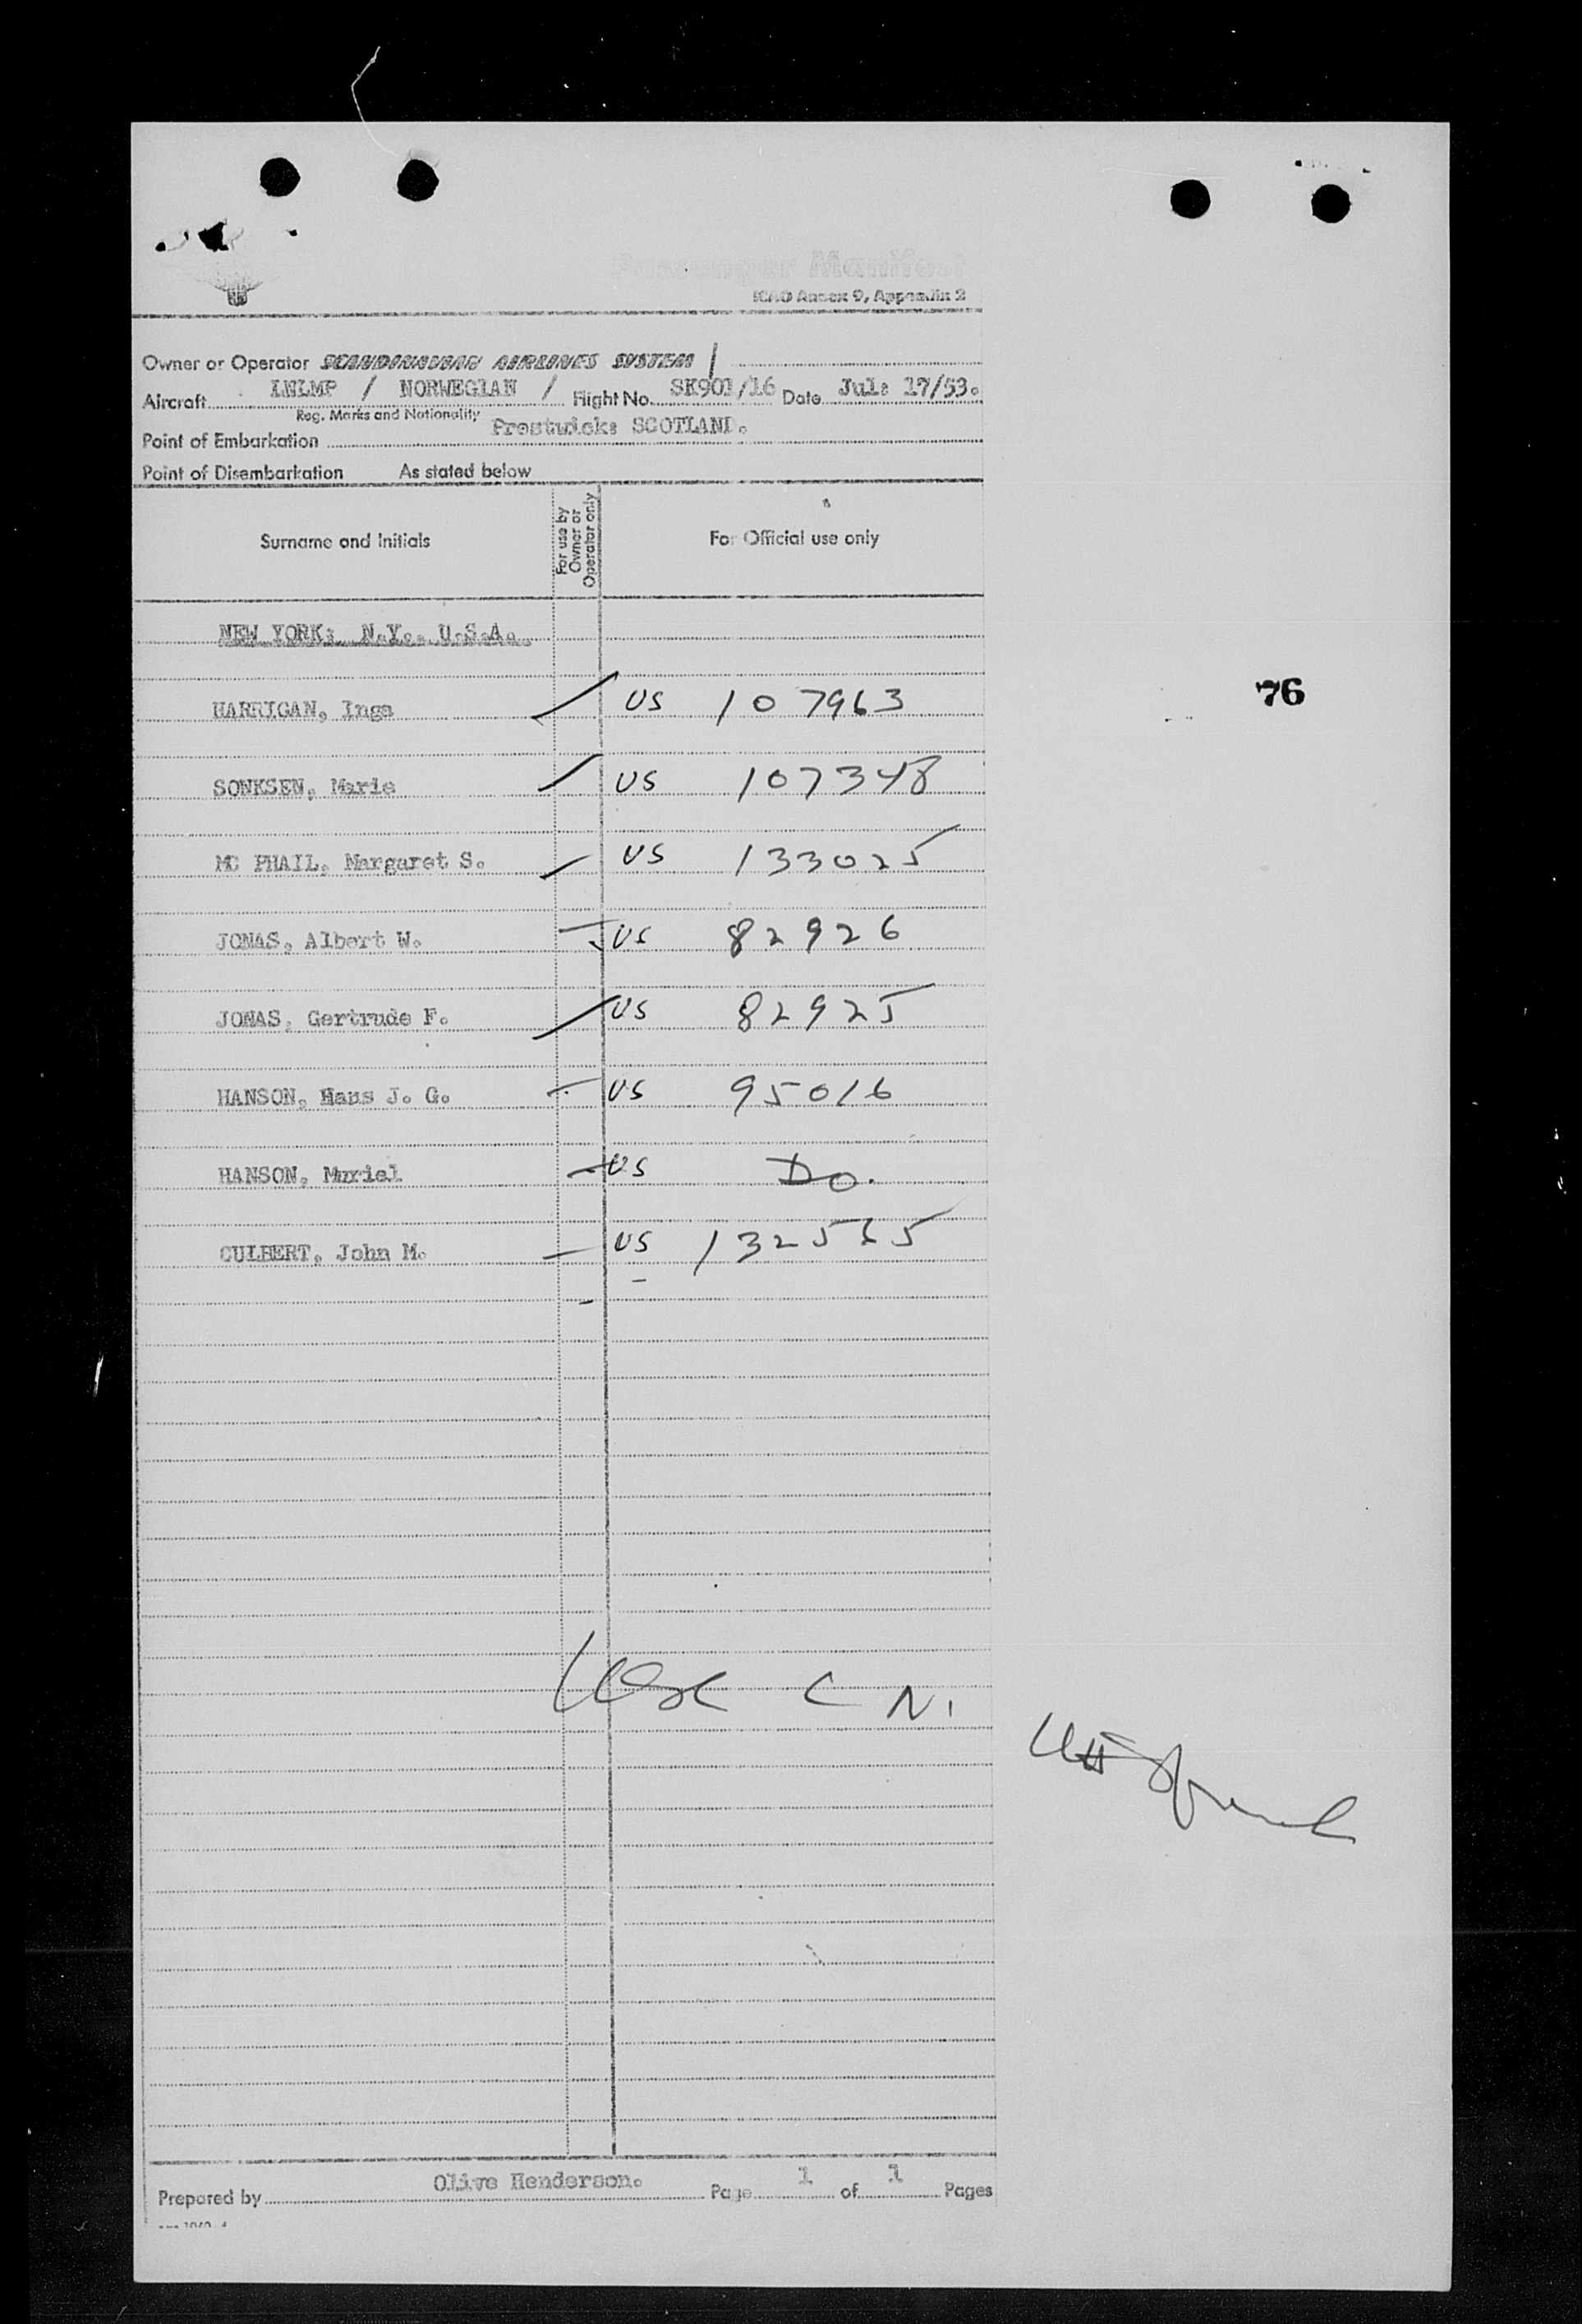 Passenger Manifest
ICAO Annex 9, Appendix 2
Owner or Operator SCANDINAVIAN AIRLINES SYSTEM /
Aircraft LNLMP / NORWEGIAN / Flight No. SK901/16 Date Jul: 17/53.
Reg. Marks and Nationality
Point of Embarkation Prestwick: SCOTLAND.
Point of Disembarkation As stated below
Surname and Initials For use by Owner or Operator only For Official use only
NEW YORK: N.Y., U.S.A.
HARRIGAN, Inga US 107963
SONKSEN, Marie US 107348
MC PHAIL, Margaret S. US 133025
JONAS, Albert W. US 82926
JONAS, Gertrude F. US 82925
HANSON, Hans J. G. US 95016
HANSON, Muriel US Do.
CULBERT, John M. US 132565
76
Prepared by Olive Henderson. Page 1 of 1 Pages